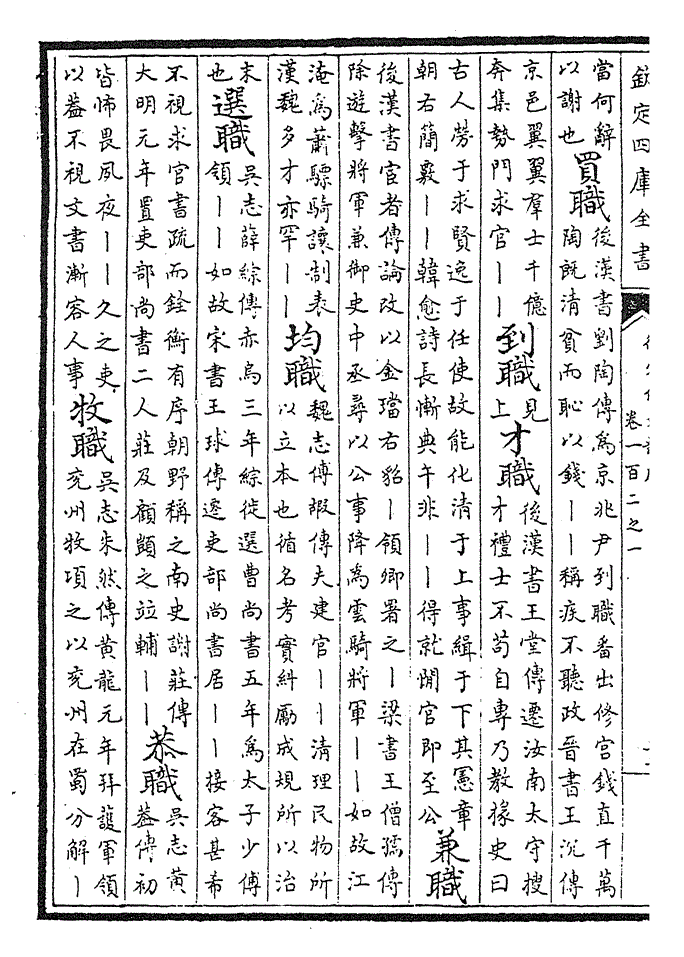 欽定四庫全書
卷一百二之一
當何辭
以謝也
買職
後漢書劉陶傳為京兆尹到職畨出修宮錢直千萬
陶既清貧而恥以錢——稱疾不聽政晉書王沉傳
京邑翼翼羣士千億
奔集勢門求官——
到職
見
上
才職
後漢書王堂傳遷汝南太守搜
才禮士不苟自專乃教掾史曰
古人勞于求賢逸于任使故能化清于上事緝于下其憲章
朝右簡覈——韓愈詩長慚典午非——得就閒官即至公
兼職
後漢書宦者傳論改以金璫右貂—領卿署之—梁書王僧孺傳
除遊擊將軍兼御史中丞尋以公事降為雲騎將軍——如故江
淹為蕭驃騎讓制表
漢魏多才亦罕——
均職
魏志傅嘏傳夫建官——清理民物所
以立本也循名考實糾勵成規所以治
末
也
選職
吳志薛綜傳赤烏三年綜徙選曹尚書五年為太子少傅
領——如故宋書王球傳遷吏部尚書居——接客甚希
不視求官書疏而銓衡有序朝野稱之南史謝莊傳
大明元年置吏部尚書二人莊及顧顗之竝輔——
恭職
吳志黄
蓋傳初
皆怖畏夙夜——久之吏
以蓋不視文書漸容人事
牧職
吳志朱然傳黄龍元年拜護軍領
兖州牧頃之以兖州在蜀分解—